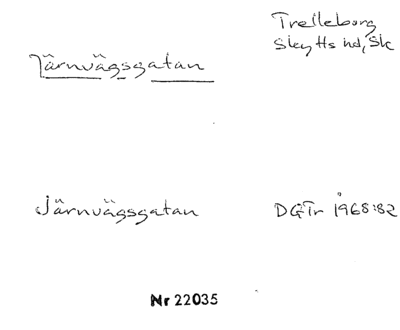 Trelleborg
Skytts hd, Sk
Järnvägsgatan
Järnvägsgatan DGTr 1968:82
Nr 22035